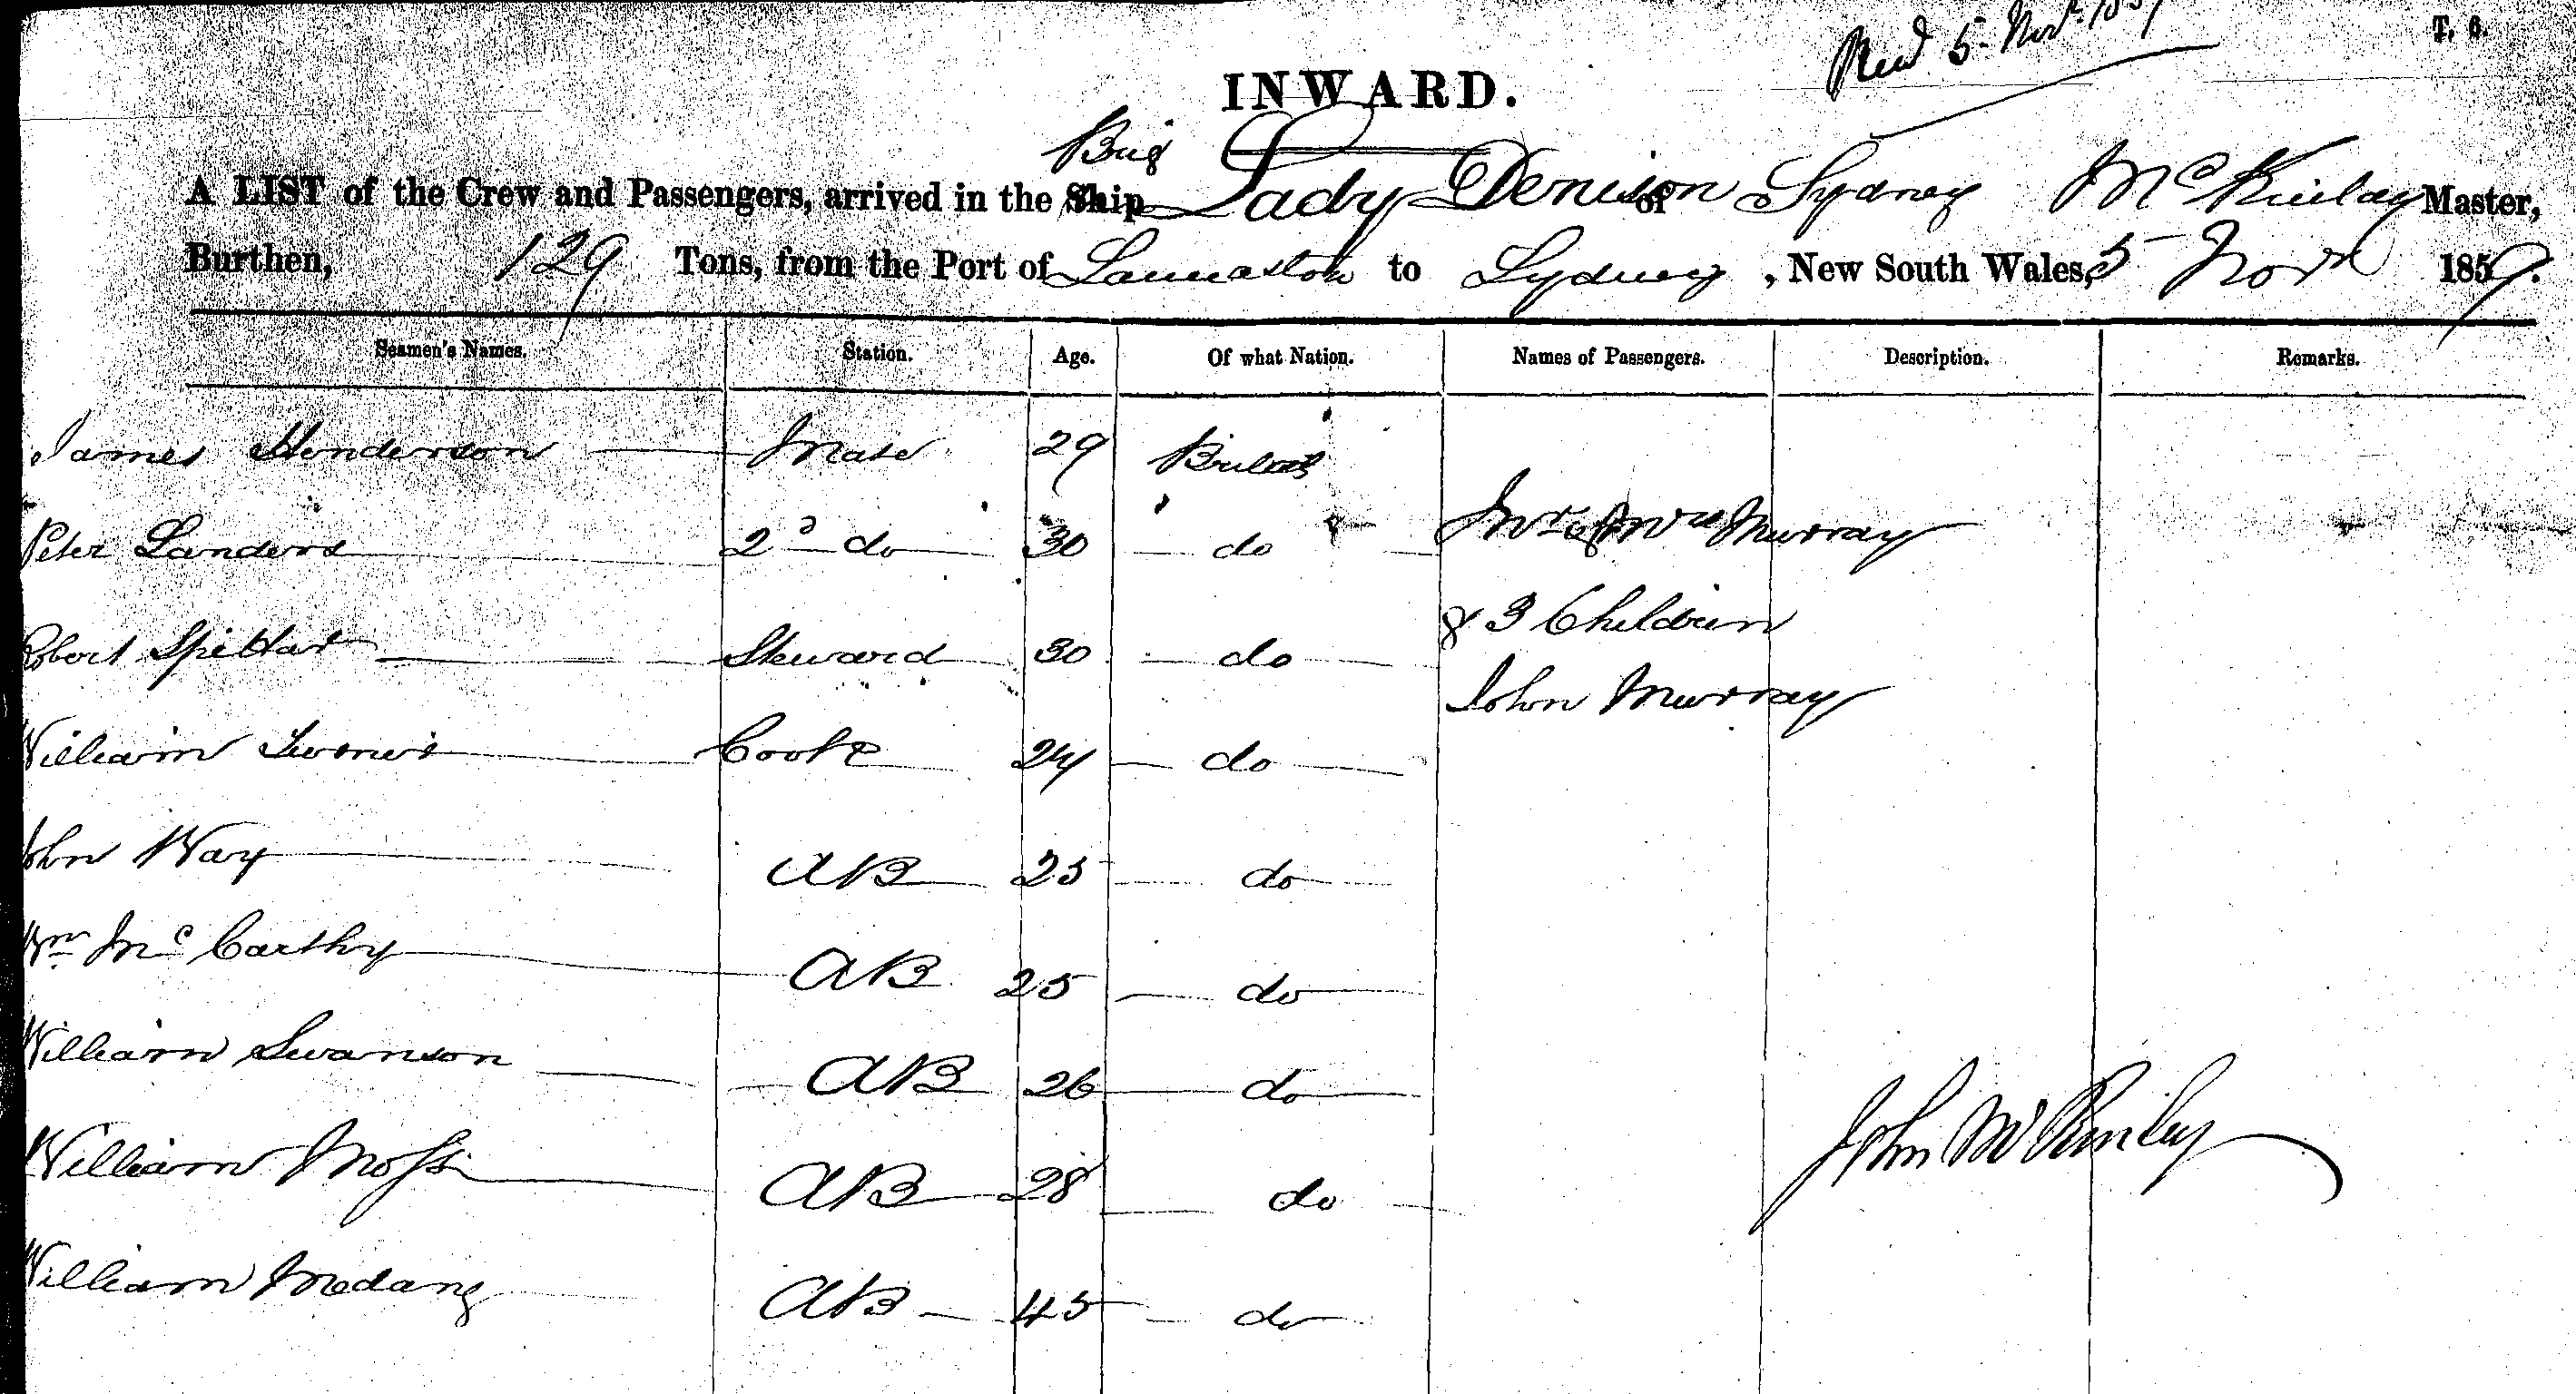 Recd 5 Novr. 1859
T. 6.
INWARD.
Brig
A LIST of the Crew and Passengers, arrived in the Ship Lady Denison of Sydney McKinlay Master,
Burthen, 129 Tons, from the Port of Launceston to Sydney, New South Wales, 5 Novr 1859.
Seamen's Names. Station. Age. Of what Nation. Names of Passengers. Description. Remarks.
James Henderson Mate 29 British
Peter Landers 2d do 30 do Mr & Mrs Murray
& 3 Children
Robert Spittar Steward 30 do
John Murray
William Cook 24 do
John Way AB 25 do
Wm McCarthy AB 25 do
William Swanson AB 26 do
John McKinlay
William Moss AB 28 do
William AB 45 do